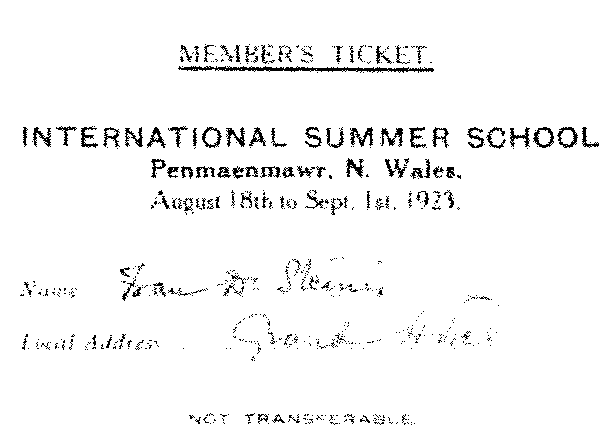 MEMBER'S TICKET.
INTERNATIONAL SUMMER SCHOOL
Penmaenmawr, N. Wales,
August 18th to Sept. 1st, 1923.
Name Frau Dr Steiner
Local Address . Grand Hotel
NOT TRANSFERABLE.